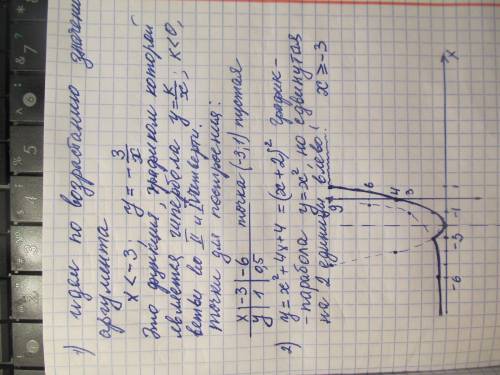 1) идем по возрастанию значений
аргумента
x < -3, y = -3/x
Это функция, графиком которой
является гипербола y = k/x; k<0,
ветви во II и IV четверти.
точки для построения:
x | -3 | -6
y | 1 | 0,5
точка (-3,1) пустая
2) y = x² + 4x + 4 = (x + 2)² график -
- парабола y = x², но сдвинутая
на 2 единицы влево, x ≥ -3
9 6 4 3
-1 -3 -6
x